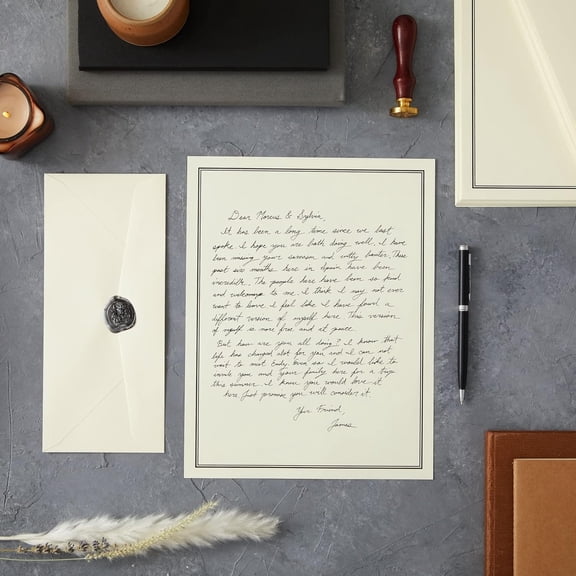 Dear Marcus & Sylvia,
It has been a long time since we last
spoke. I hope you are both doing well. I have
been missing your sarcasm and witty banter. These
past six months here in Spain have been
incredible. The people here have been so kind
and welcoming to me. I think I may not ever
want to leave. I feel like I have found a
different version of myself here. This version
of myself is more free and at peace.
But how are you all doing? I know that
life has changed alot for you and I can not
wait to meet Emily. Even so I would like to
invite you and your family here for a trip
this summer. I know you would love it
here. Just promise you will consider it.
Your Friend,
James